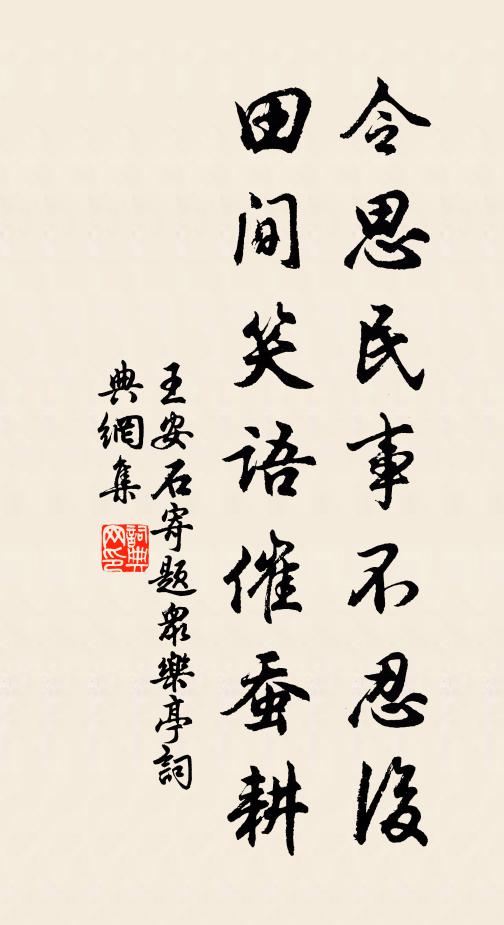 令思民事不忍後
田间笑語催蚕耕
王安石寄題眾樂亭詞
典網集
詞典網印